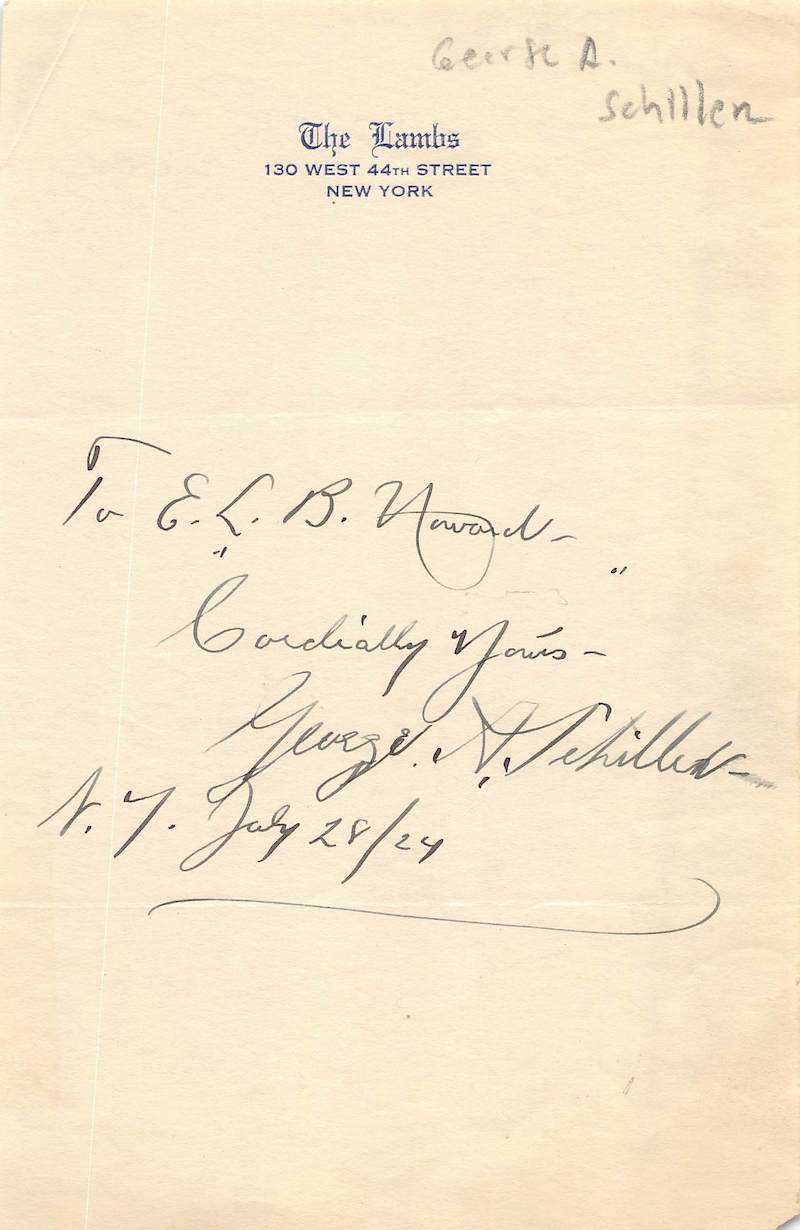 George A.
Schiller
The Lambs
130 WEST 44TH STREET
NEW YORK
To E. L. B. Howard –
"Cordially Yours –"
George A. Schiller –
N. Y. July 28/24